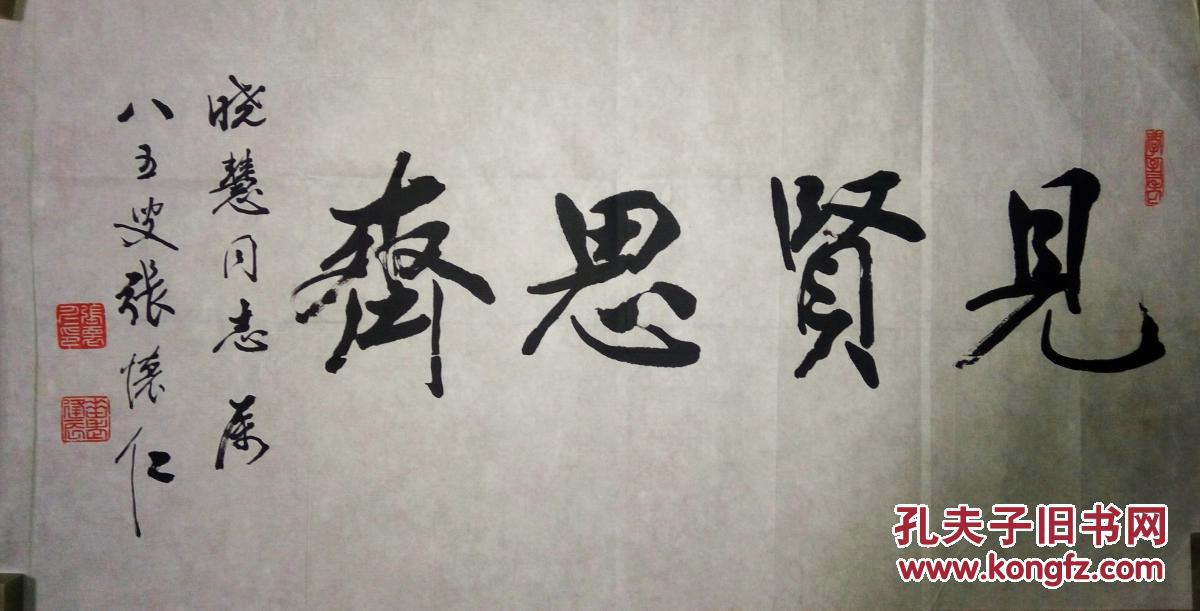 見賢思齊
晓慧同志属
八五叟張懷仁
孔夫子旧书网
www.kongfz.com